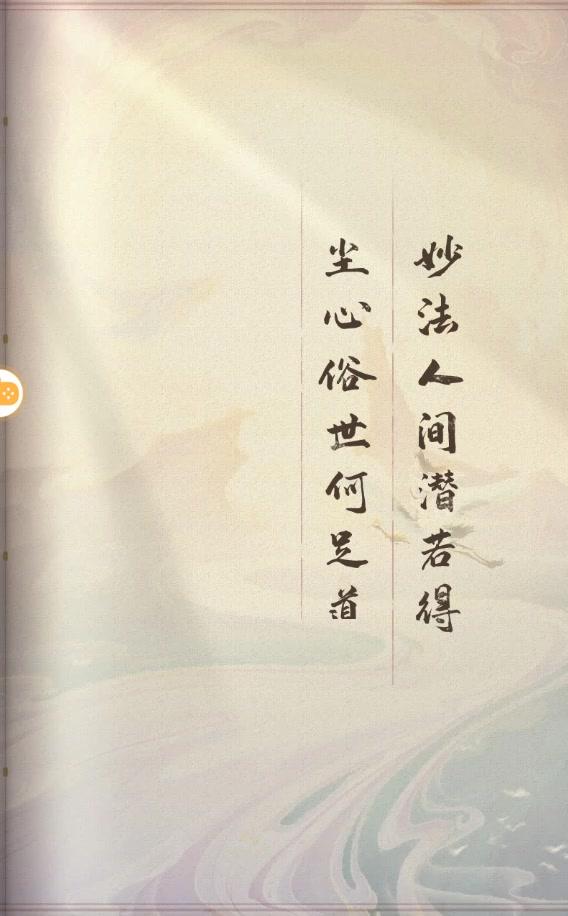 妙法人间潜若得
尘心俗世何足道